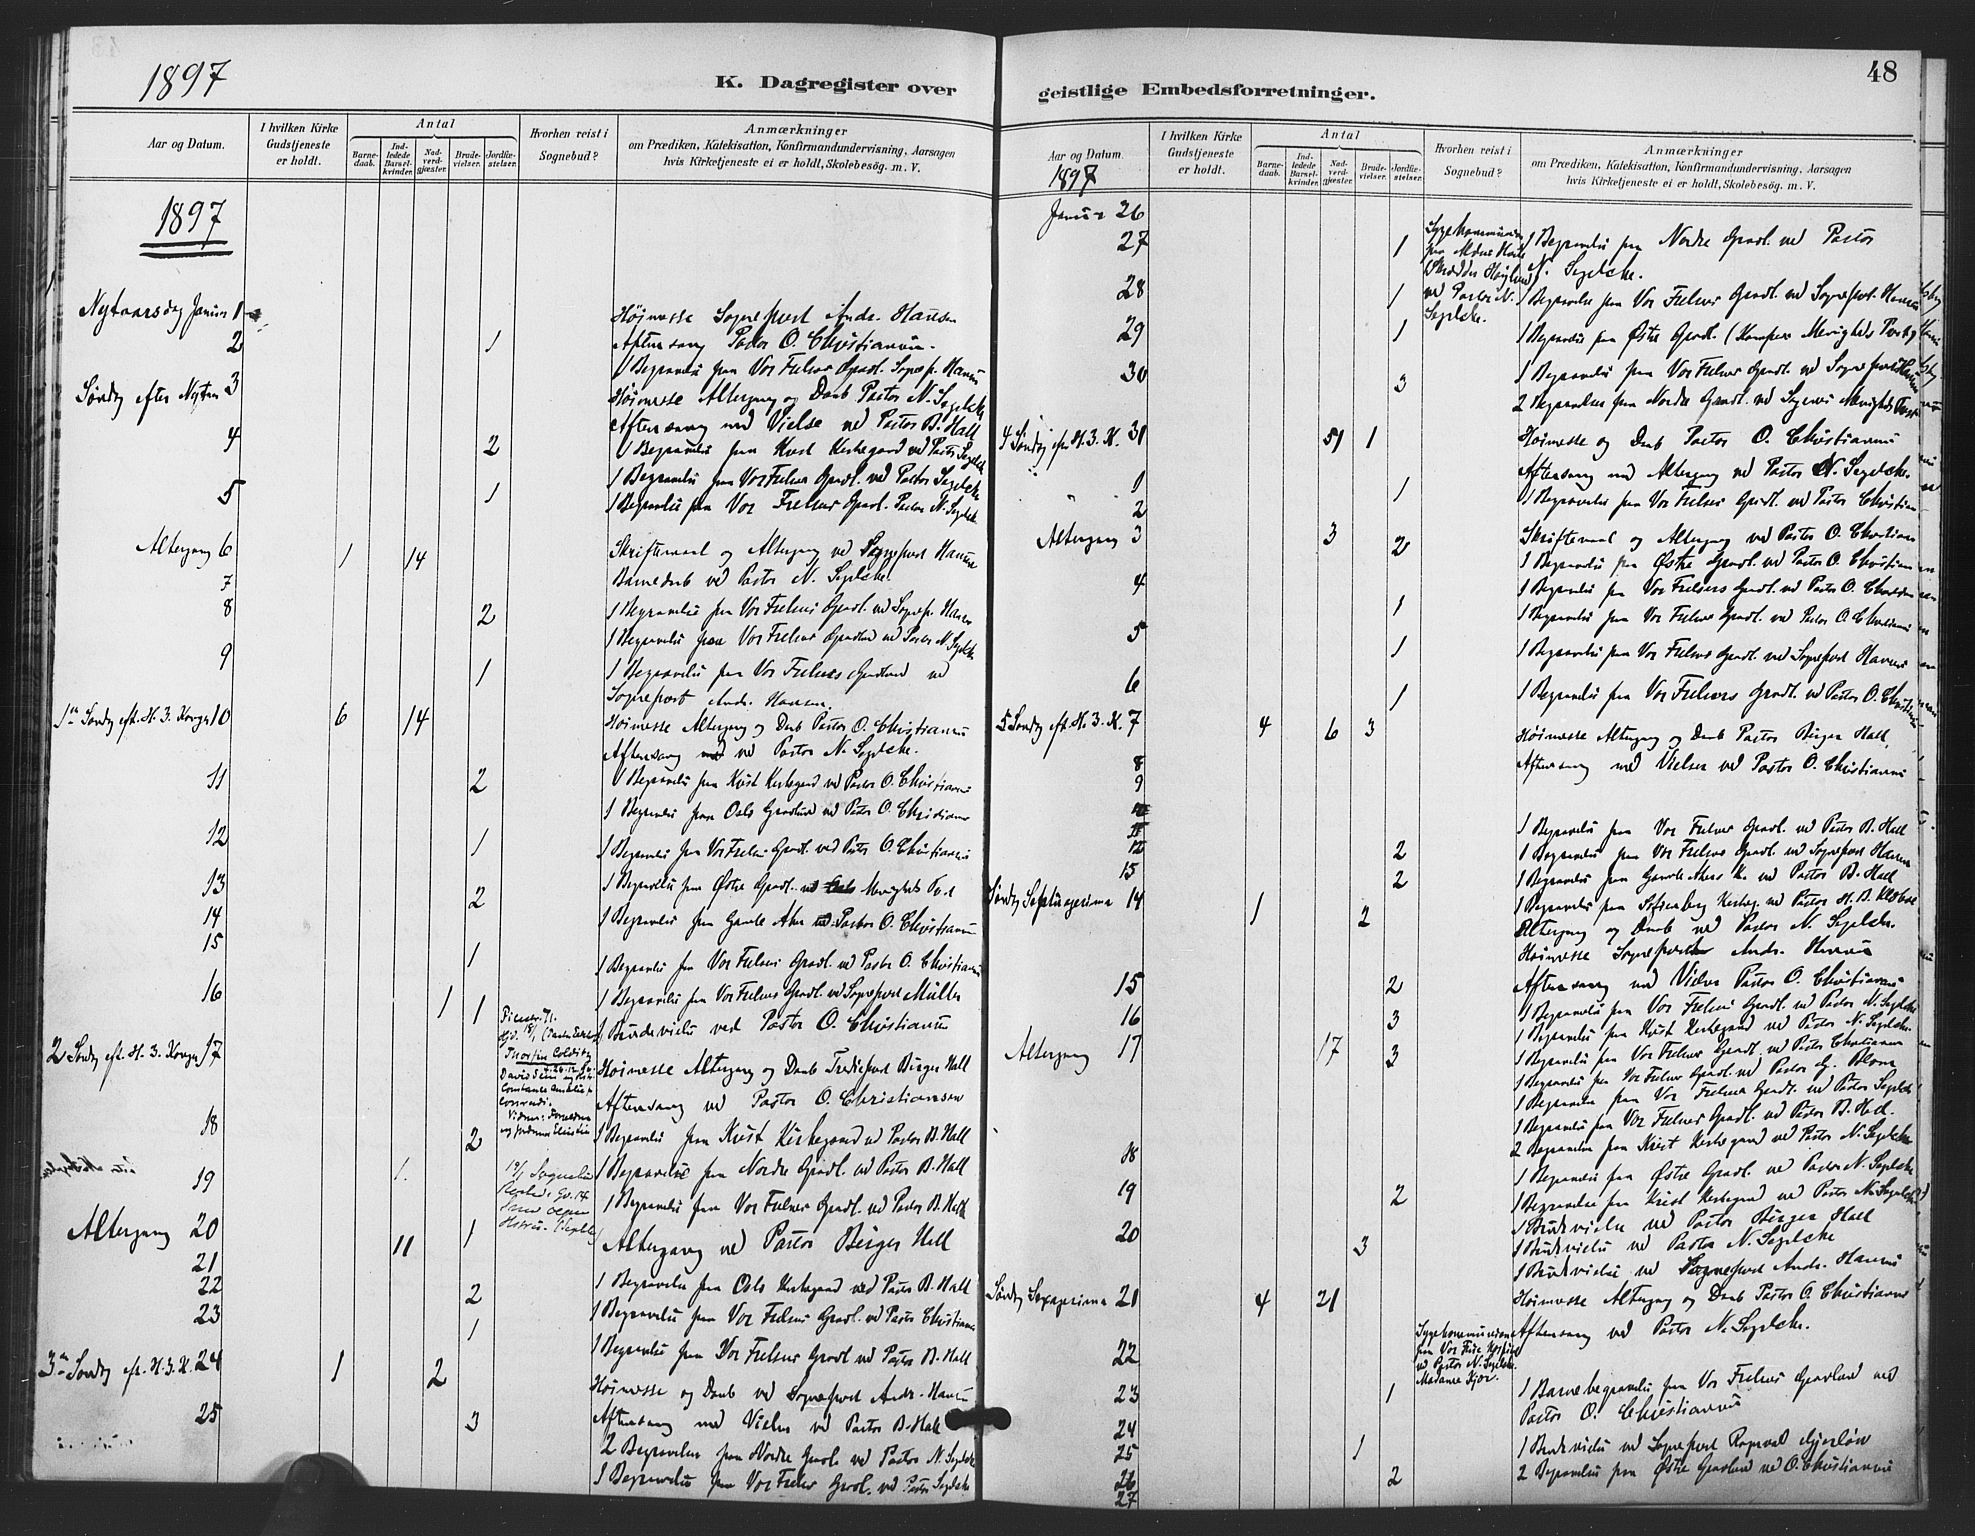 1897
K. Dagregister over
Aar og Datum.
I hvilken Kirke Gudstjeneste er holdt.
Antal
Barne-daab.
Ind-ledede Barsel-kvinder.
Nad-verd-gjæster.
Brude-vielser.
Jordfæ-stelser.
Hvorhen reist i Sognebud?
Anmærkninger
om Prædiken, Katekisation, Konfirmandundervisning, Aarsagen
hvis Kirketjeneste ei er holdt, Skolebesøg. m. V.
1897
Nytaarsdag Januar 1
Høimesse Sogneprest Andr. Hansen
Aftensang Pastor O. Christiansen
2 1
1 Begravelse fra Vor Frelser Gravl. Sognepr. Hansen
Søndag efter Nytaar 3
Høimesse Altergang og Daab Pastor N. Segelcke
Aftensang med Vielse ved Pastor B. Hall
4 2
1 Begravelse fra Krist Kirkegaard ved Pastor Segelcke
1 Begravelse fra Vor Frelser Gravl. ved Pastor Segelcke
5 1
1 Begravelse fra Vor Frelser Gravl. Pastor N. Segelcke
Altergang 6 1 14
Skriftemaal og Altergang ved Sogneprest Hansen
Barnedaab ved Pastor N. Segelcke
7
8 2
1 Begravelse fra Vor Frelsers Gravl. ved Sognepr. Hansen
1 Begravelse fra Vor Frelser Gravlund ved Pastor N. Segelcke
9 1
1 Begravelse fra Vor Frelsers Gravlund ved
Sogneprest Andr. Hansen
1ste Søndag eft. H. 3. Konger 10 6 14
Høimesse Altergang og Daab Pastor O. Christiansen
Aftensang ved Pastor N. Segelcke.
11 2
1 Begravelse fra Krist Kirkegaard ved Pastor O. Christiansen
1 Begravelse fra Oslo Gravlund ved Pastor O. Christiansen
12 1
1 Begravelse fra Vor Frelser Gravl. ved Pastor O. Christiansen
13 2
1 Begravelse fra Østre Gravl. ved Menigheds
14
1 Begravelse fra Gamle Aker ved Pastor O. Christiansen
15 1
1 Begravelse fra Vor Frelsers Gravl. ved Pastor O. Christiansen
16 1 1
1 Begravelse fra Vor Frelsers Gravl. ved Sogneprest Müller
1 Brudevielse ved Pastor O. Christiansen
2 Søndag eft. H. 3. Konger 17
Høimesse Altergang og Daab Trediepræst Birger Hall
Aftensang ved Pastor O. Christiansen
18 2
1 Begravelse fra Krist Kirkegaard ved Pastor B. Hall
1 Begravelse fra Nordre Gravl. ved Pastor B. Hall
19
1 Begravelse fra Vor Frelser Gravl. ved Pastor B. Hall
Altergang 20 11 1
Altergang ved Pastor Birger Hall
21
22 2
1 Begravelse fra Oslo Kirkegaard ved Pastor B. Hall
1 Begravelse fra Vor Frelsers Gravl. ved Pastor Christiansen
23 1
1 Begravelse fra Vor Frelser Gravl. ved Pastor B. Hall
3die Søndag eft. H. 3. K. 24 1 2
Høimesse og Daab ved Sogneprest Andr. Hansen
Aftensang med Vielse ved Pastor B. Hall
25 3
2 Begravelser fra Nordre Gravl. ved Pastor N. Segelcke
1 Begravelse fra Vor Frelser Gravl. ved Pastor Segelcke
48
geistlige Embedsforretninger.
Aar og Datum.
1897
I hvilken Kirke Gudstjeneste er holdt.
Antal
Barne-daab.
Ind-ledede Barsel-kvinder.
Nad-verd-gjæster.
Brude-vielser.
Jordfæ-stelser.
Hvorhen reist i Sognebud?
Anmærkninger
om Prædiken, Katekisation, Konfirmandundervisning, Aarsagen
hvis Kirketjeneste ei er holdt, Skolebesøg. m. V.
Januar 26
27 1
1 Begravelse fra Nordre Gravl. ved Pastor
N. Segelcke.
ved Pastor N. Segelcke.
28 1
1 Begravelse fra Vor Frelser Gravl. ved Sogneprest Hansen
29 1
1 Begravelse fra Østre Gravl. ( Menigheds
30 3
1 Begravelse fra Vor Frelser Gravl. ved Sogneprest Hansen
2 Begravelser fra Nordre Gravl. ved
4 Søndag eft. H. 3. K. 31 51 1
Høimesse og Daab Pastor O. Christiansen
Aftensang med Altergang ved Pastor N. Segelcke.
1 1
1 Begravelse fra Vor Frelsers Gravl. ved Pastor Christiansen
2
Altergang 3 3 2
Skriftemaal og Altergang ved Pastor O. Christiansen
1 Begravelse fra Østre Gravl. ved Pastor O. Christiansen
1 Begravelse fra Vor Frelsers Gravl. ved Pastor O. Christiansen
4 1
1 Begravelse fra Vor Frelser Gravl. ved Pastor O. Christiansen
5 1
1 Begravelse fra Vor Frelsers Gravl. ved Sogneprest Hansen
6 1
1 Begravelse fra Vor Frelsers Gravl. ved Pastor O. Christiansen
5 Søndag eft. H. 3. K. 7 4 6 3
Høimesse Altergang og Daab Pastor Birger Hall,
Aftensang med Vielser ved Pastor O. Christiansen
8
9
1 Begravelse fra Vor Frelser Gravl. ved Pastor B. Hall
12 2
1 Begravelse fra Vor Frelsers Gravl. ved Sogneprest Hansen
13 2
1 Begravelse fra Gamle Akers K. ved Pastor B. Hall
1 Begravelse fra Sofienberg Kirkeg. ved Pastor H. B. Kløboe
Søndag Septuagesima 14 1 2
Altergang og Daab ved Pastor N. Segelcke.
Høimesse Sogneprest Andr. Hansen
Aftensang med Vielse Pastor O. Christiansen
15 2
1 Begravelse fra Vor Frelser Gravl. ved Pastor N. Segelcke
1 Begravelse fra Krist Kirkegaard ved Pastor N. Segelcke.
16 3
1 Begravelse fra Vor Frelser Gravl. ved Pastor Christiansen
1 Begravelse fra Vor Frelser Gravl. ved Pastor Blom
1 Begravelse fra Vor Frelsers Gravl. ved Pastor Segelcke
Altergang 17 17 3
1 Begravelse fra Vor Frelsers Gravl. ved Pastor B. Hall.
2 Begravelser fra Krist Kirkegaard ved Pastor N. Segelcke
18
1 Begravelse fra Østre Gravl. ved Pastor N. Segelcke
19 2
1 Begravelse fra Krist Kirkegaard ved Pastor N. Segelcke
1 Brudevielse ved Pastor Birger Hall
20 3
1 Brudevielse ved Pastor N. Segelcke
1 Brudevielse ved Sogneprest Andr. Hansen
Søndag Sexagesima 21 4 21
Høimesse Altergang og Daab Pastor O. Christiansen
Aftensang ved Pastor N. Segelcke.
22
ved Pastor N. Segelcke.
23 1
1 Barnebegravelse fra Vor Frelsers Gravlund ved
Pastor O. Christiansen
24
25 1
1 Brudevielse ved Sogneprest Ragnvald Gjerløw
26 2
2 Begravelser fra Østre Gravlund ved O. Christiansen
27